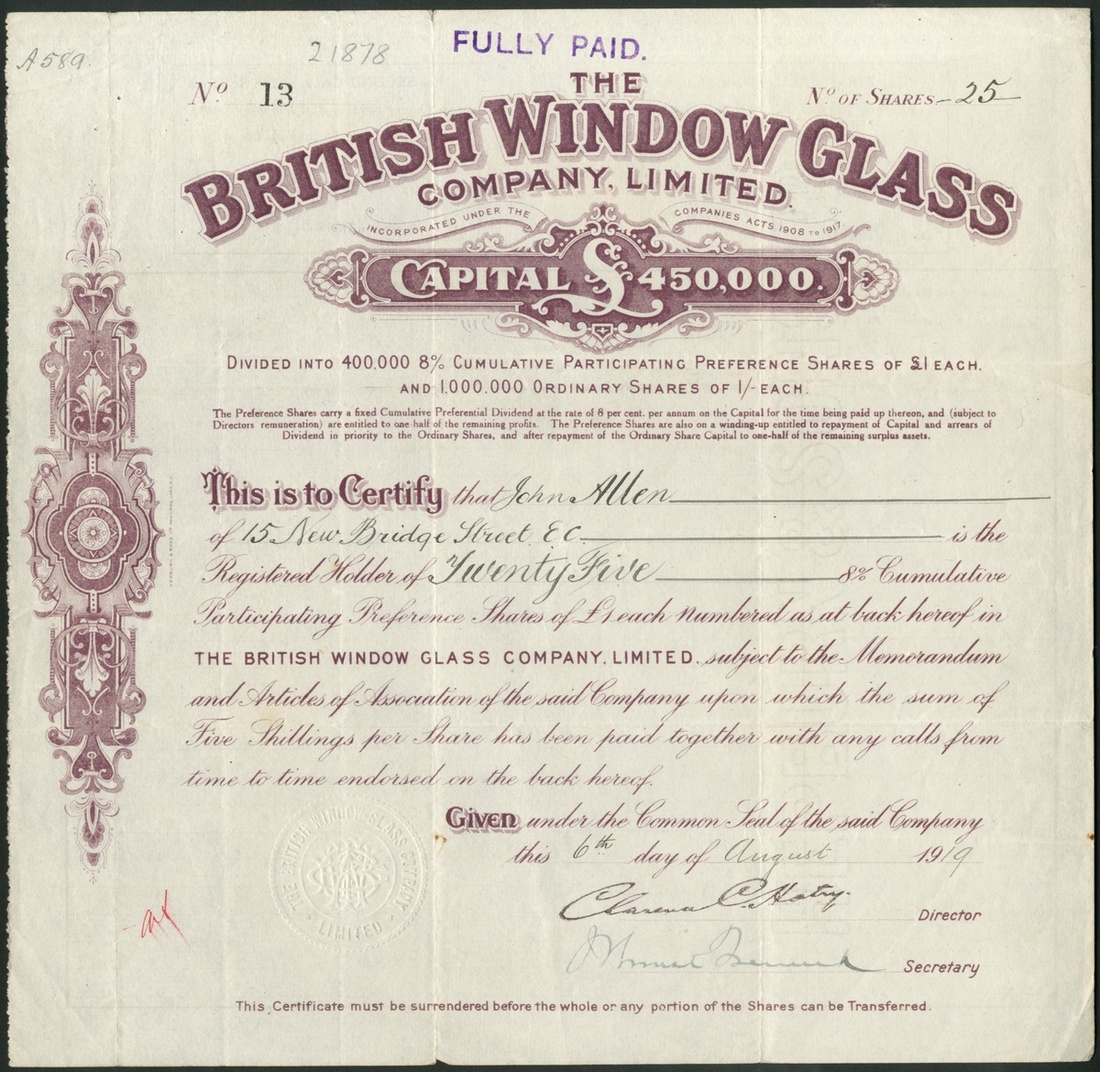 A589.
21878
FULLY PAID.
Nº 13
Nº OF SHARES 25
THE
BRITISH WINDOW GLASS
COMPANY, LIMITED.
INCORPORATED UNDER THE COMPANIES ACTS 1908 TO 1917
CAPITAL £450,000.
DIVIDED INTO 400,000 8% CUMULATIVE PARTICIPATING PREFERENCE SHARES OF £1 EACH,
AND 1,000,000 ORDINARY SHARES OF 1/- EACH.
The Preference Shares carry a fixed Cumulative Preferential Dividend at the rate of 8 per cent. per annum on the Capital for the time being paid up thereon, and (subject to
Directors remuneration) are entitled to one-half of the remaining profits. The Preference Shares are also on a winding-up entitled to repayment of Capital and arrears of
Dividend in priority to the Ordinary Shares, and after repayment of the Ordinary Share Capital to one-half of the remaining surplus assets.
This is to Certify that John Allen
of 15 New Bridge Street, EC is the
Registered Holder of Twenty Five 8% Cumulative
Participating Preference Shares of £1 each numbered as at back hereof in
THE BRITISH WINDOW GLASS COMPANY, LIMITED, subject to the Memorandum
and Articles of Association of the said Company upon which the sum of
Five Shillings per Share has been paid together with any calls from
time to time endorsed on the back hereof.
Given under the Common Seal of the said Company
this 6th day of August 1919
THE BRITISH WINDOW GLASS COMPANY LIMITED
Clarence C. Hatry. Director
Secretary
This Certificate must be surrendered before the whole or any portion of the Shares can be Transferred.